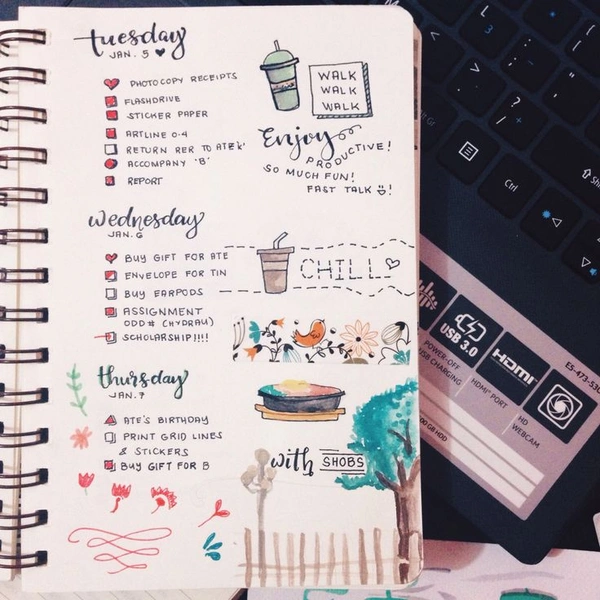 tuesday
JAN. 5
PHOTOCOPY RECEIPTS
FLASHDRIVE
STICKER PAPER
ARTLINE 0.4
RETURN RER TO ATE 'K'
ACCOMPANY 'B'
REPORT
WALK
WALK
WALK
Enjoy
PRODUCTIVE!
SO MUCH FUN!
FAST TALK !
wednesday
JAN. 6
BUY GIFT FOR ATE
ENVELOPE FOR TIN
BUY EARPODS
ASSIGNMENT
ODD # (HYDRAU)
SCHOLARSHIP!!!!
CHILL
thursday
JAN. 7
ATE'S BIRTHDAY
PRINT GRID LINES
& STICKERS
BUY GIFT FOR B
with SHOBS
Ctrl
Shi
USB 3.0
POWER-OFF
USB CHARGING
HDMI
HDMI® PORT
HD
WEBCAM
GB HDD